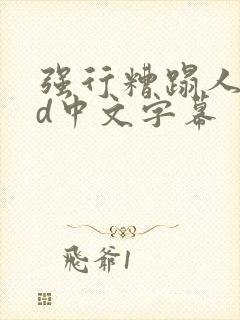 强行糟蹋人
d中文字幕
飛爺1